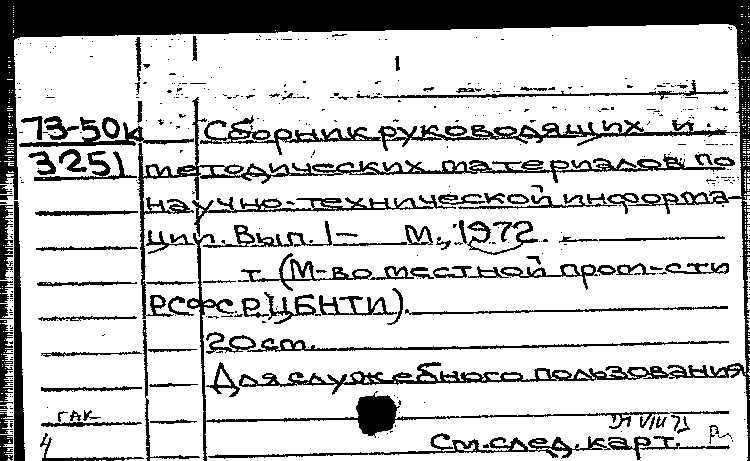 1
73-50к Сборник руководящих и
3251 методических материалов по
научно-технической информа-
ции. Вып. 1— М., 1972.
т. (М-во местной пром-сти
РСФСР ЦБНТИ).
20 см.
Для служебного пользования
ГАК
4 См. след. карт.